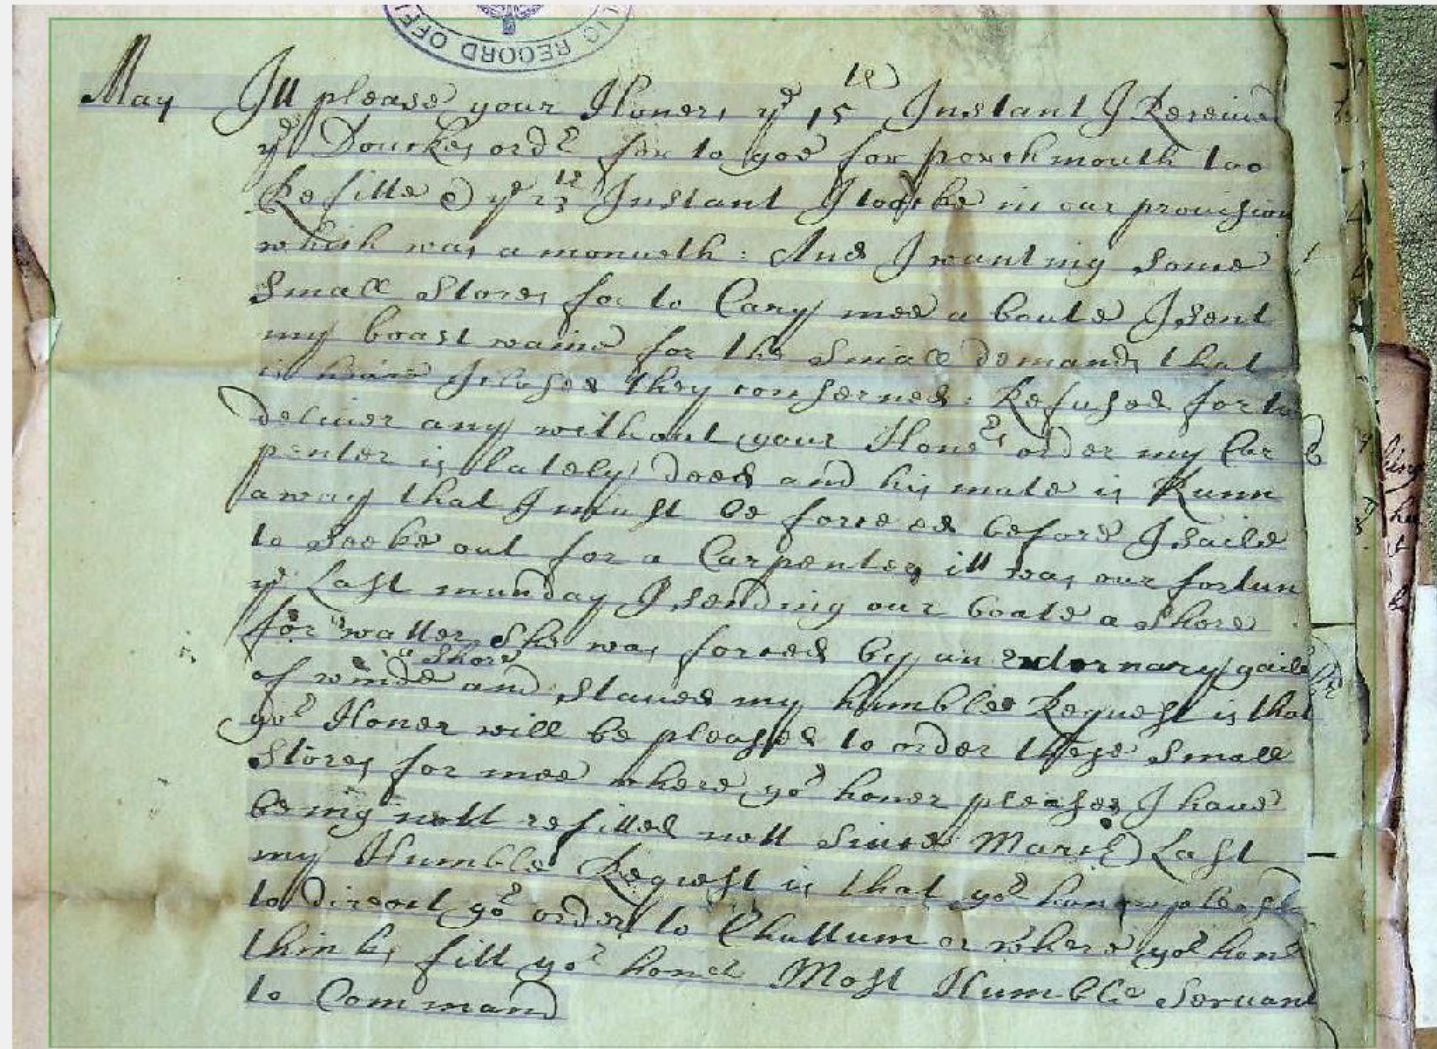 PUBLIC RECORD OFFI
May Itt please your Honers ye 15th Instant I Receiued
ye Douckes ordr for to goe for porchmouth too
Refitte @ ye 23th Instant I toocke in our prouision
which was a monueth : And I wanting some
Small Stores for to Cary mee a boute I sent
my boast waine for the Small demands that
is heire Inclosed they conserned : Refused for to
deliuer any without your Honers order my Car
penter is lately deed and his mate is Runn
away that I must be forceed before I saile
to Seeke out for a Carpenter itt was our fortun
ye Last munday I sending our boate a Shore
for watter She was forced by an extornary gaile
a Shore
of winde and Staued my humblee Request is that
yor Honer will be pleased to order these Small
Stores for mee where yor honer pleases I haue
being nott refitted nott Since March Last
my Humble Request is that yor honer please
to direct yor order to Chattum or where yor honr
thinks fitt yor honer Most Humble Seruant
to Command